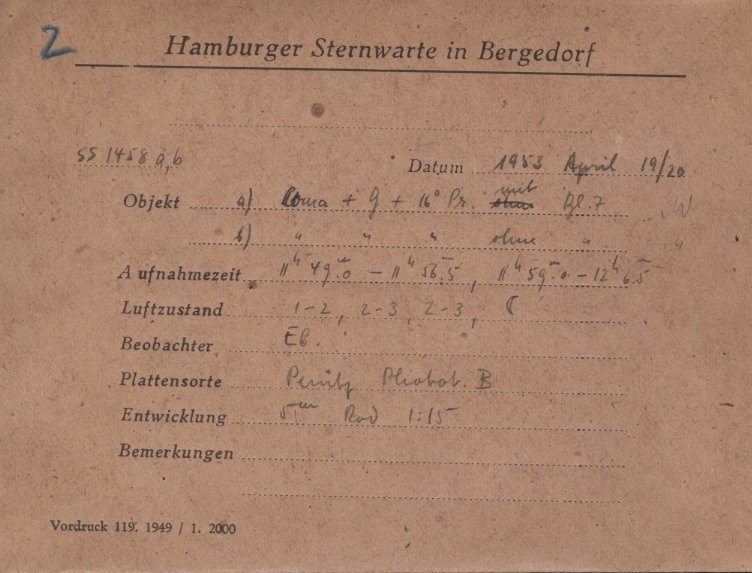 2
Hamburger Sternwarte in Bergedorf
SS 1458 a,b
Datum 1953 April 19/20
Objekt a) Coma + G + 16° Pr. mit ohne Gl. 7 W
b) " " " ohne " "
Aufnahmezeit 11h 49m.0 – 11h 56m.5, 11h 59m.0 – 12h 6m.5
Luftzustand 1-2, 2-3, 2-3, ☾
Beobachter Eb.
Plattensorte Perutz Phobot. B
Entwicklung 5m Rod 1:15
Bemerkungen
Vordruck 119. 1949 / 1. 2000